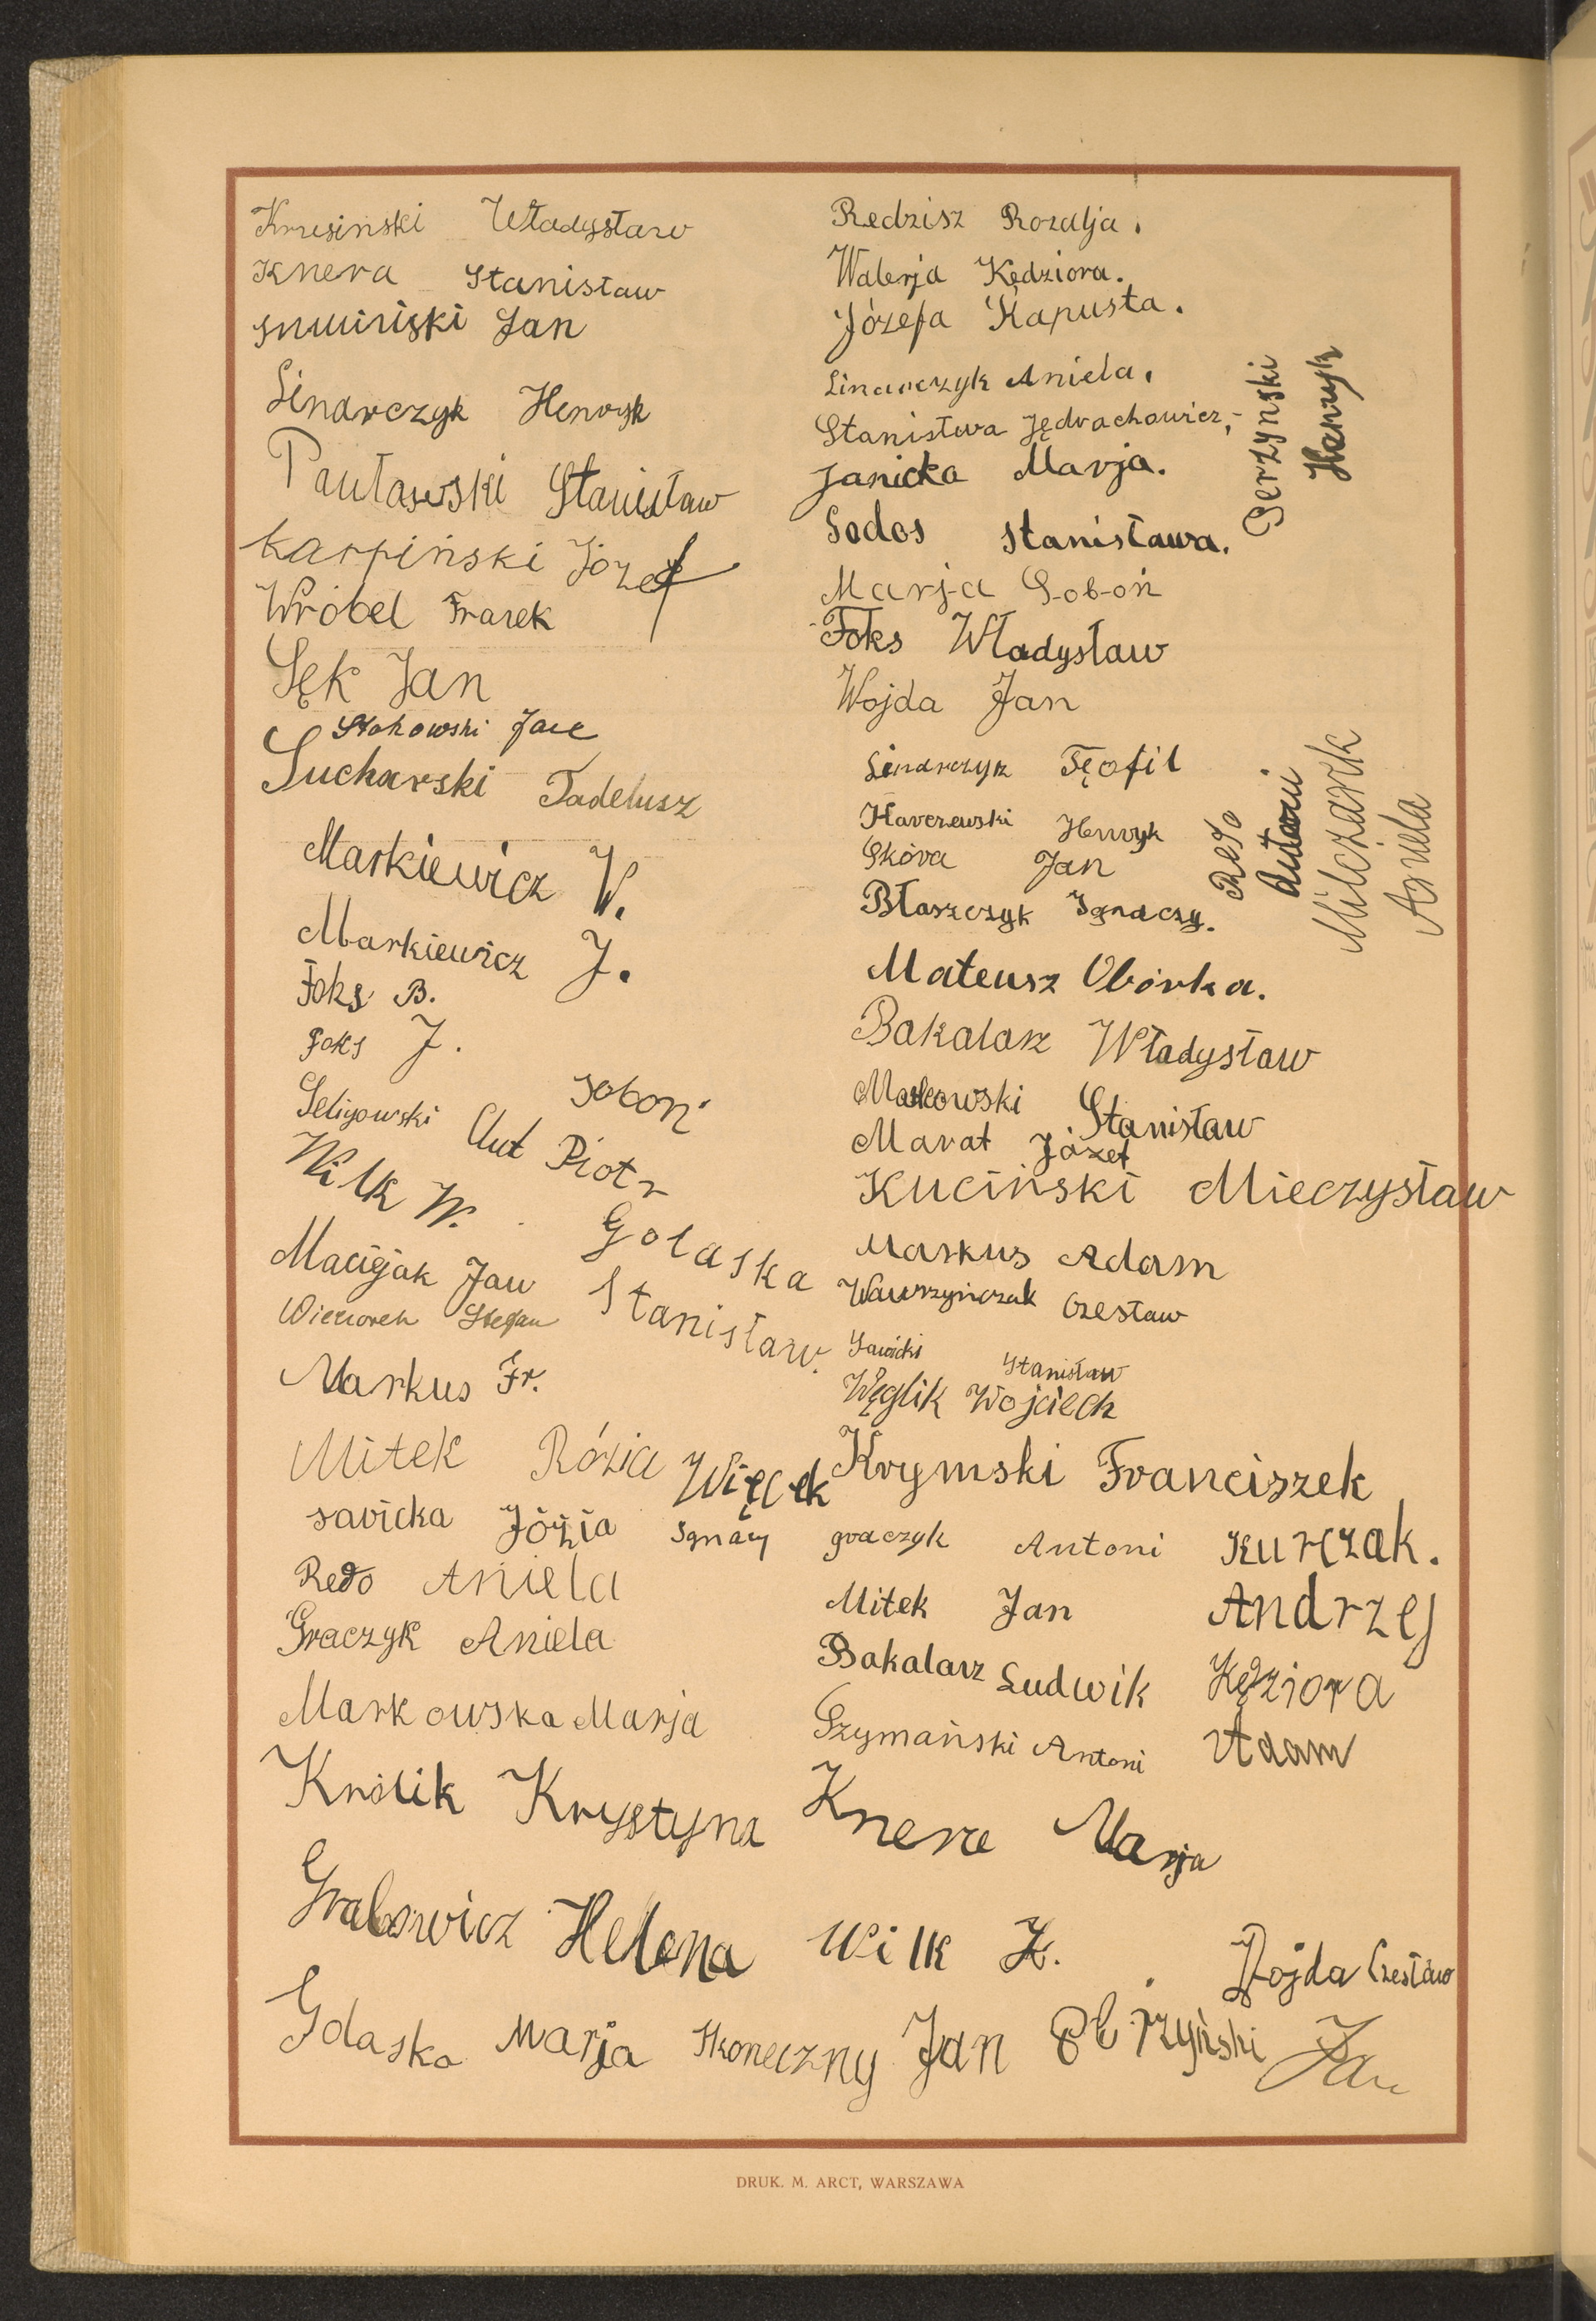 Krusinski Władysław
Knera Stanisław
Jan
Linarczyk Henryk
Pautawski Stanisław
Karpiński Józef
Wróbel Franek
Sęk Jan
Stokowski
Sucharski Tadelusz
Markiewicz W.
Markiewicz J.
Foks B.
Foks J.
Seligowski
Soboń
Piotr
Wilk W.
Gołaska
Stanisław.
Macijak Jan
Wieczorek Stefan
Markus Fr.
Mitek Rózia
Więcek
Ignacy
savicka Józia
Redo Aniela
Graczyk Aniela
Markowska Marja
Królik Krystyna
Grabowicz Helena
Golaska Marja
Redzisz Rozalja.
Walerja Kędziora.
Józefa Kapusta.
Linarczyk Aniela.
Stanisława Jędrachowicz,-
Janicka Marja.
Sodos Stanisława.
Marja Soboń
Foks Władysław
Wojda Jan
Linarczyk Teofil
Harczewski Henryk
Skóra Jan
Błaszczyk Ignaczy.
Mateusz Obórka.
Bakalarz Władysław
Markowski Stanisław
Marat Józef
Kuciński Mieczysław
Markus Adam
Wawrzyńczak Czesław
Sawicki Stanisław
Węglik Wojciech
Krymski Franciszek
graczyk Antoni
Mitek Jan
Bakalarz Ludwik
Szymański Antoni
Knera Marja
Wilk
Skoneczny Jan
Gerzyński
Henryk
Redo
Antoni
Milczarek
Aniela
Kurczak.
Andrzej
Kędziora
Adam
Wojda Czesław
Jan
DRUK. M. ARCT, WARSZAWA